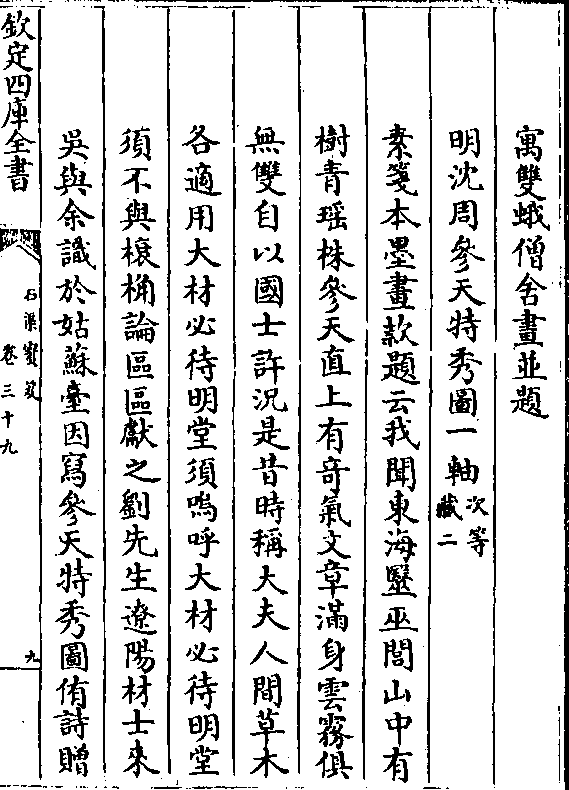 寓雙蛾僧舍畫並題
明沈周參天特秀圖一軸次等藏二
素箋本墨畫款題云我聞東海毉巫閭山中有
樹青瑶株參天直上有奇氣文章滿身雲霧俱
無雙自以國士許況是昔時稱大夫人間草木
各適用大材必待明堂須嗚呼大材必待明堂
須不與榱桷論區區獻之劉先生遼陽材士來
吳與余識於姑蘇臺因寫參天特秀圖侑詩贈
欽定四庫全書
石渠寳笈
卷三十九
九